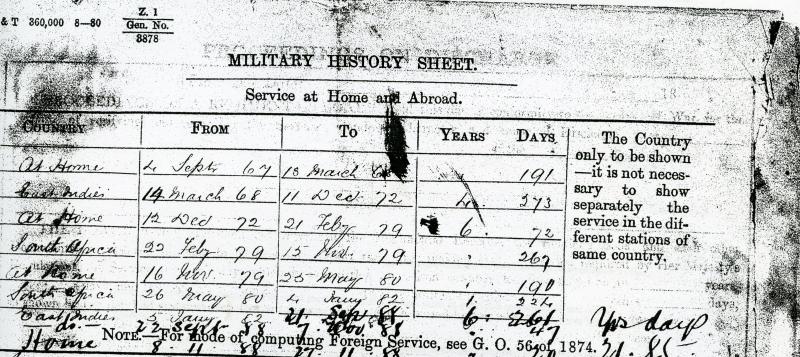 & T 360,000 8—80
Z. 1
Gen. No.
3878
MILITARY HISTORY SHEET.
Service at Home and Abroad.
COUNTRY FROM TO YEARS DAYS
At Home 4 Septr 67 13 March 191
East Indies 14 March 68 11 Decd 72 4 273
At Home 12 Decd 72 21 Feby 79 6 72
South Africa 22 Feby 79 15 Nov. 79 267
At Home 16 Nov. 79 25 May 80 190
South Africa 26 May 80 4 Jany 82 1 224
East Indies 5 Jany 82 21 Sep 88 6
do. 22 Sept 88 7 Nov. 88 47
Home 8 . 11 . 88 27 11 88
The Country
only to be shown
—it is not neces-
sary to show
separately the
service in the dif-
ferent stations of
same country.
Yrs days
21
NOTE.—For mode of computing Foreign Service, see G. O. 56 of 1874.